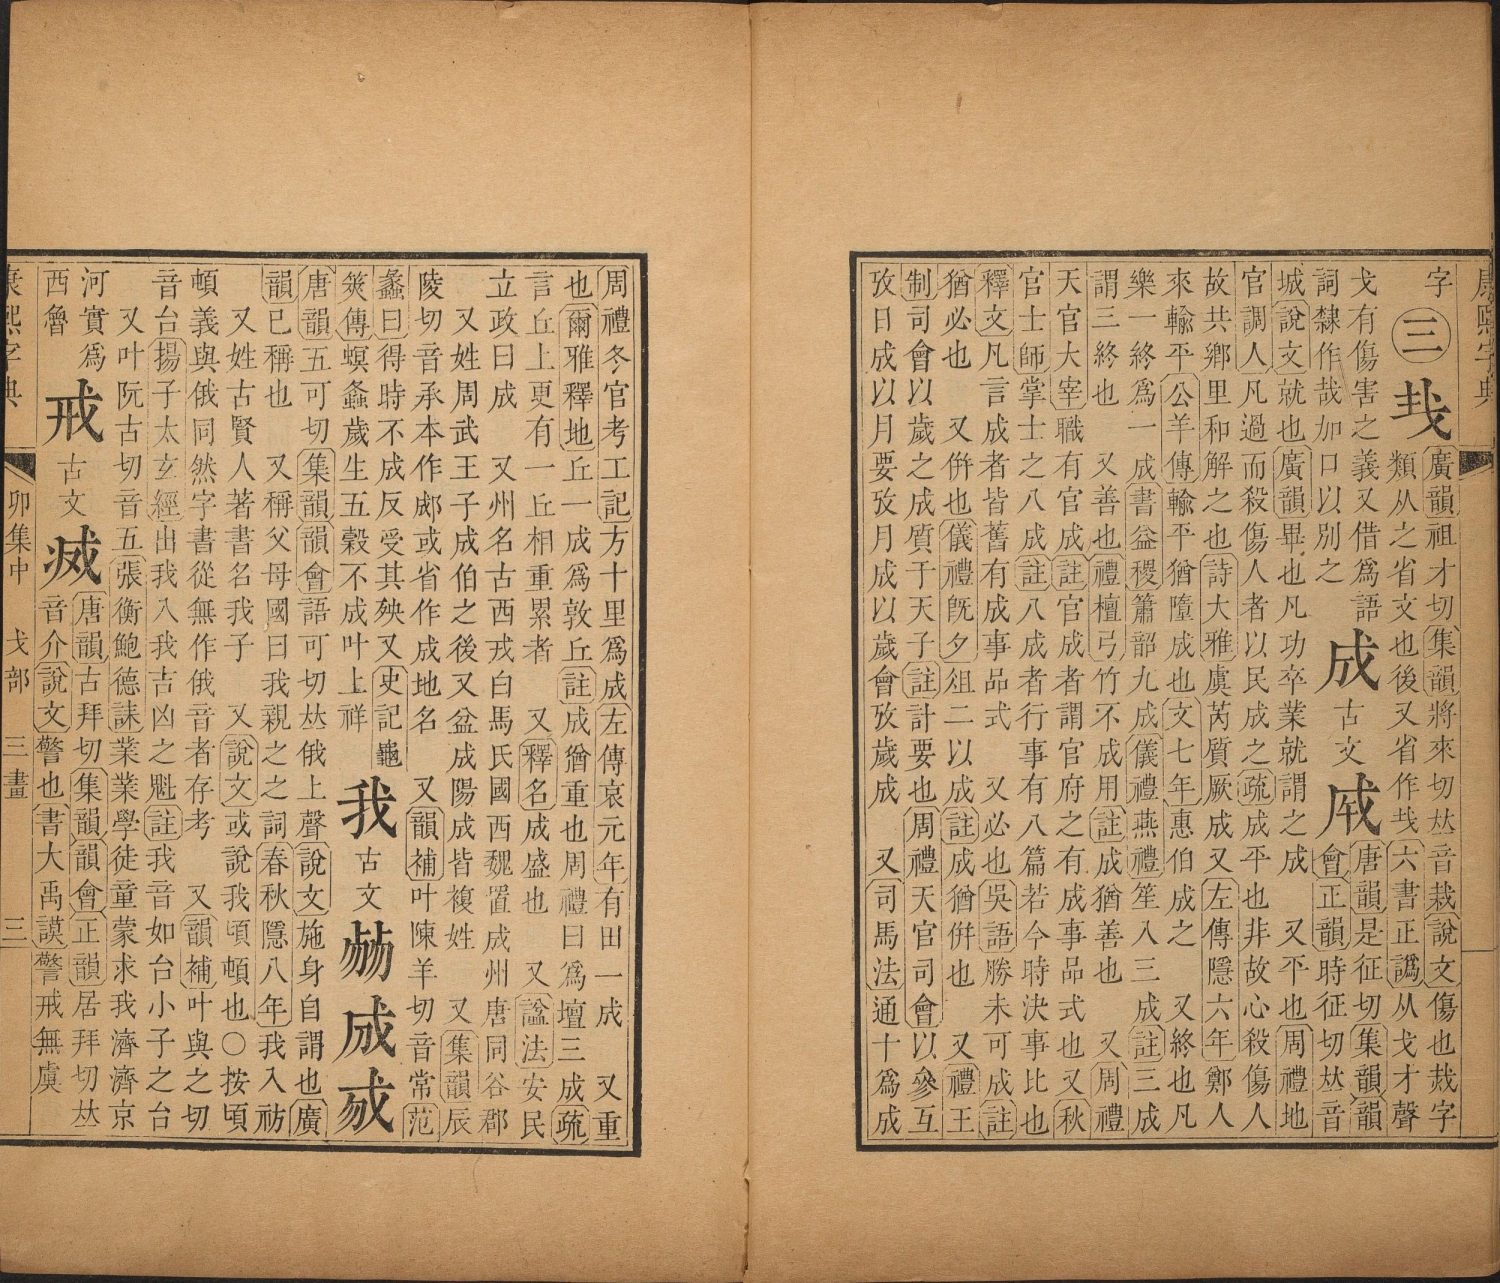 康熙字典
字
㊂
𢦏
廣韻祖才切集韻將來切𠀤音栽說文傷也烖字
類从之省文也後又省作𢦏六書正譌从戈才聲
戈有傷害之義又借爲語
詞隸作哉加口以別之
成 古文
唐韻是征切集韻韻
會正韻時征切𠀤音
城說文就也廣韻畢也凡功卒業就謂之成　又平也周禮地
官調人凡過而殺傷人者以民成之疏成平也非故心殺傷人
故共鄉里和解之也詩大雅虞芮質厥成又左傳隱六年鄭人
來輸平公羊傳輸平猶隳成也文七年惠伯成之　又終也凡
樂一終爲一成書益稷簫韶九成儀禮燕禮笙入三成註三成
謂三終也　又善也禮檀弓竹不成用註成猶善也　又周禮
天官大宰職有官成註官成者謂官府之有成事品式也又秋
官士師掌士之八成註八成者行事有八篇若今時決事比也
釋文凡言成者皆舊有成事品式　又必也吳語勝未可成註
猶必也　又倂也儀禮旣夕俎二以成註成猶倂也　又禮王
制司會以歲之成質于天子註計要也周禮天官司會以參互
攷日成以月要攷月成以歲會攷歲成　又司馬法通十爲成
周禮冬官考工記方十里爲成左傳哀元年有田一成　又重
也爾雅釋地丘一成爲敦丘註成猶重也周禮曰爲壇三成疏
言丘上更有一丘相重累者　又釋名成盛也　又諡法安民
立政曰成　又州名古西戎白馬氏國西魏置成州唐同谷郡
又姓周武王子成伯之後又盆成陽成皆複姓　又集韻辰
陵切音承本作郕或省作成地名　又韻補叶陳羊切音常范
蠡曰得時不成反受其殃又史記龜
筴傳螟螽歲生五穀不成叶上祥
我 古文
唐韻五可切集韻韻會語可切𠀤俄上聲說文施身自謂也廣
韻己稱也　又稱父母國曰我親之之詞春秋隱八年我入祊
又姓古賢人著書名我子　又說文或說我頃頓也○按頃
頓義與俄同然字書從無作俄音者存考　又韻補叶與之切
音台揚子太玄經出我入我吉凶之魁註我音如台小子之台
又叶阮古切音五張衡鮑德誄業業學徒童蒙求我濟濟京
河實爲
西魯
戒 古文
唐韻古拜切集韻韻會正韻居拜切𠀤
音介說文警也書大禹謨警戒無虞
康熙字典
卯集中　戈部　三畫　三